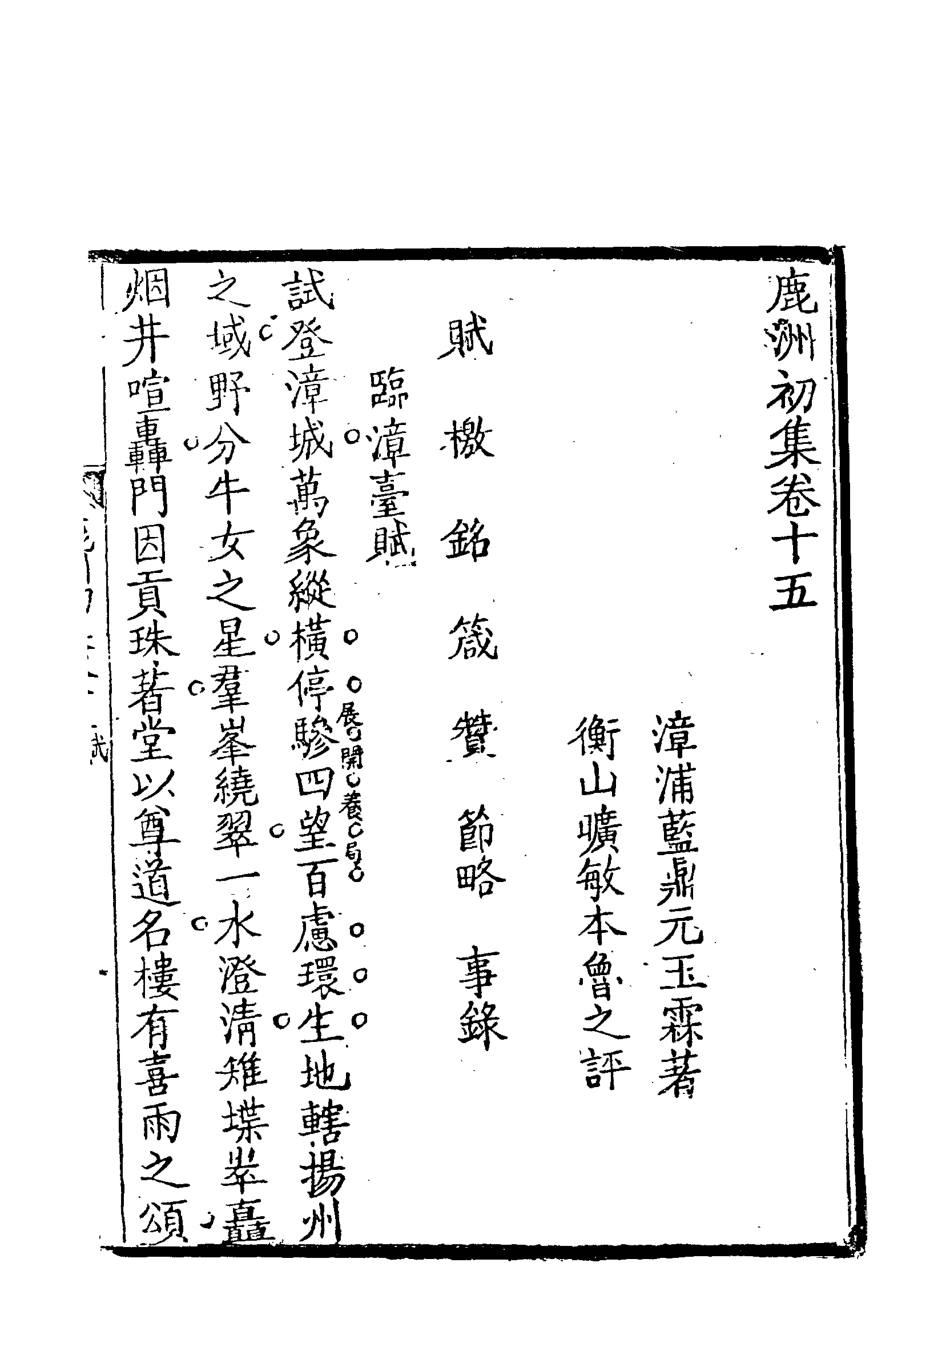 鹿洲初集卷十五
漳浦藍鼎元玉霖著
衡山曠敏本魯之評
賦 檄 銘 箴 贊 節略 事錄
臨漳臺賦
試登漳城萬象縱橫停驂四望百慮環生地轄揚州
展開養局
之域野分牛女之星羣峯繞翠一水澄清雉堞崒矗
烟井喧轟門因貢珠著堂以尊道名樓有喜雨之頌